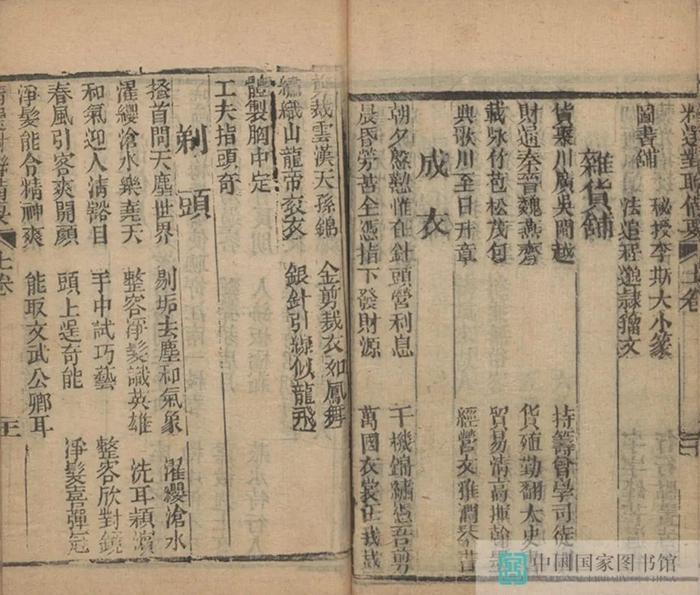 圖書舖
秘授李斯大小篆
法追程邈隸籀文
雜貨舖
貨聚川廣吳閩越 持籌會學司徒
財通秦晉魏燕齊 貨殖勤翻太史
載咏竹苞松茂句 貿易清高揮翰
典歌川至日升章 經營文雅潤琴書
成衣
朝夕慇懃惟在針頭營利息 千機錦繡憑吾剪
晨昏勞苦全憑指下發財源 萬國衣裳任我裁
剪裁雲漢天孫錦 金剪裁衣如鳳舞
織山龍帝袞衣 銀針引線似龍飛
體製胸中定
工夫指頭奇
剃頭
搔首問天塵世界 剔垢去塵和氣象 濯纓滄水
濯纓滄水樂堯天 整容淨髮識英雄 洗耳穎濱
和氣迎人清豁目 手中試巧藝 整容欣對鏡
春風引客爽開顏 頭上逞奇能 淨髮喜彈冠
淨髮能令精神爽 能取文武公卿耳
上卷
中国国家图书馆